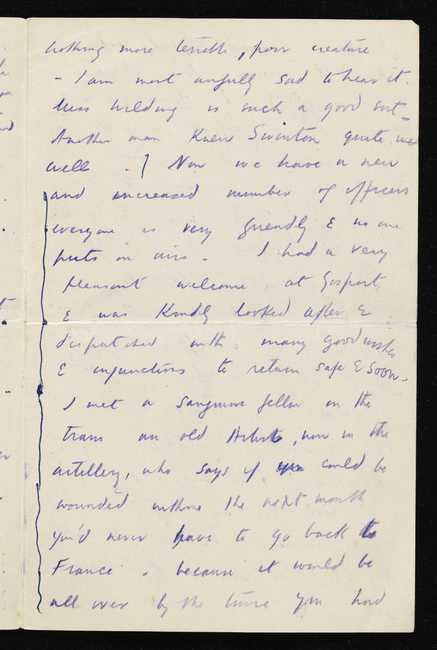 nothing more terrible, poor creature
- I am most awfully sad to hear it.
Miss Wilding is such a good sort -
Another man knew Swinton quite
well . ] Now we have a new
and increased number of officers
everyone is very friendly & no one
puts on airs - I had a very
pleasant welcome at Gosport
& was kindly looked after &
dispatched with many good wishes
& injunctions to return safe & soon.
I met a sanguine fellow in the
train an old Artist, now in the
artillery, who says if you could be
wounded within the next month
you'd never have to go back to
France . because it would be
all over by the time you had